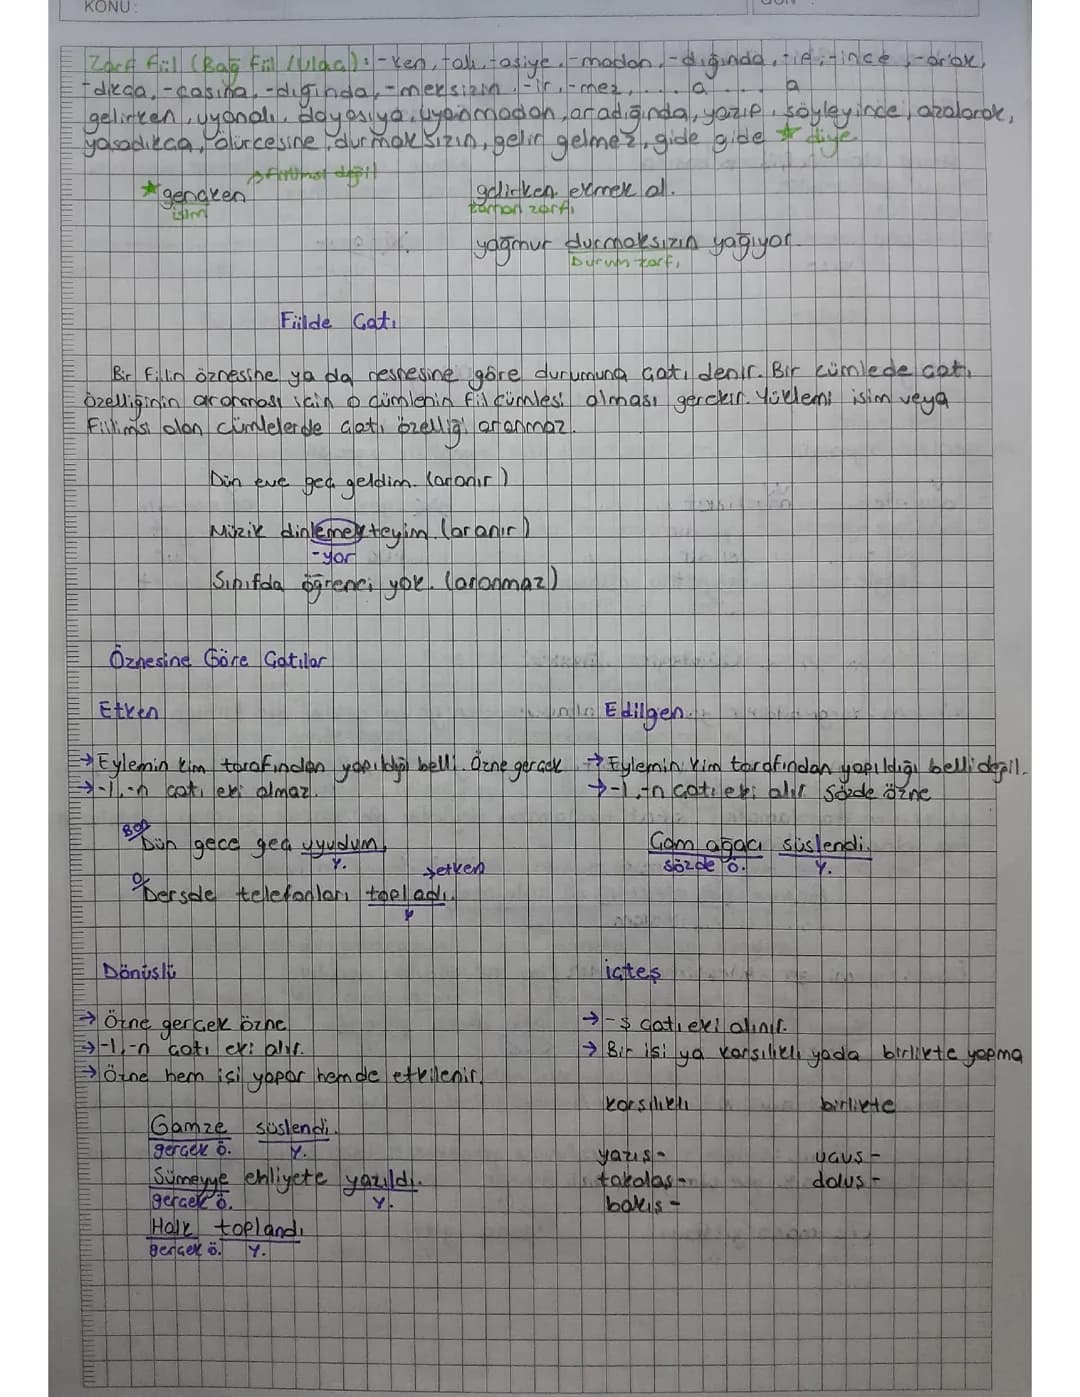 KONU:
Zarf fiil (Bağ Fiil /Ulaç): -ken, -alı, -asiye, -madan, -dığında, -ip, -ince, -arak,
-dıkça, -casına, -dığında, -meksizin, -ir, -mez, ... a ... a
gelirken, uyanalı, doyasıya, uyanmadan, aradığında, yazıp, söyleyince, azalarak,
yaşadıkça, ölürcesine, durmaksızın, gelir gelmez, gide gide ★ diye
→ fiilimsi değil
★ gençken
isim
gelirken ekmek al.
zaman zarfı
yağmur durmaksızın yağıyor.
Durum zarfı
Fiilde Çatı
Bir fiilin öznesine ya da nesnesine göre durumuna çatı denir. Bir cümlede çatı
özelliğinin aranması için o cümlenin fiil cümlesi olması gerekir. Yüklemi isim veya
Fiilimsi olan cümlelerde çatı özelliği aranmaz.
Dün eve geç geldim. (aranır)
Müzik dinlemekteyim. (aranır)
-yor
Sınıfda öğrenci yok. (aranmaz)
Öznesine Göre Çatılar
Etken
Edilgen
→ Eylemin kim tarafından yapıldığı belli. Özne gerçek
→ -l, -n çatı eki almaz.
→ Eylemin kim tarafından yapıldığı belli değil.
→ -l, -n çatı eki alır sözde özne
Ben
Dün gece geç uyudum.
Y.
→ etken
O
Dersde telefonları topladı.
Y
Çam ağacı süslendi.
sözde ö. Y.
Dönüşlü
işteş
→ Özne gerçek özne
→ -l, -n çatı eki alır.
→ Özne hem işi yapar hemde etkilenir.
→ -ş çatı eki alınır.
→ Bir işi ya karşılıklı yada birlikte yapma
karşılıklı birlikte
Gamze süslendi.
gerçek ö. Y.
Sümeyye ehliyete yazıldı.
gerçek ö. Y.
Halk toplandı
gerçek ö. Y.
yazış- uçuş-
tokalaş- doluş-
bakış-